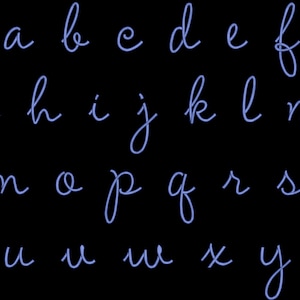 a b c d e f
h i j k l m
n o p q r s
u v w x y